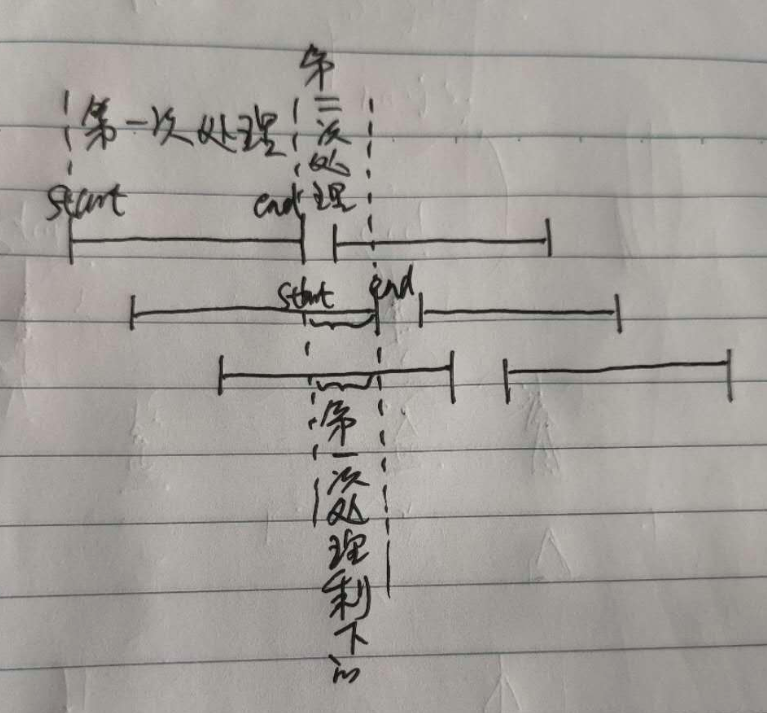 第一次处理
第二次处理
start
end
start
end
第一次处理剩下的